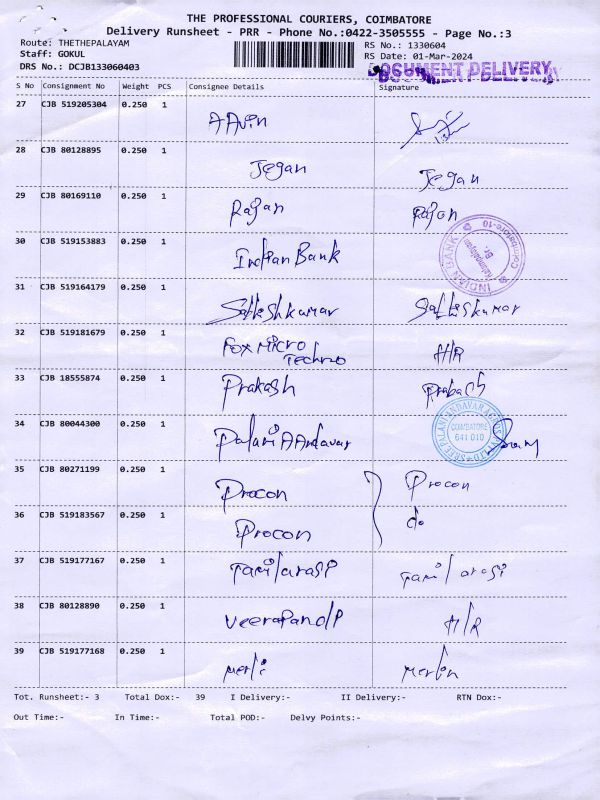 THE PROFESSIONAL COURIERS, COIMBATORE
Delivery Runsheet - PRR - Phone No.:0422-3505555 - Page No.:3
Route: THETHEPALAYAM RS No.: 1330604
Staff: GOKUL RS Date: 01-Mar-2024
DRS No.: DCJB133060403 DOCUMENT DELIVERY
S No Consignment No Weight PCS Consignee Details Signature
27 CJB 519205304 0.250 1
28 CJB 80128895 0.250 1 Jegan Jegan
29 CJB 80169110 0.250 1 Rajan Rajan
30 CJB 519153883 0.250 1 Indian Bank INDIAN BANK Coimbatore-10
31 CJB 519164179 0.250 1 Satheshkumar Sathiskumar
32 CJB 519181679 0.250 1 FOX MICRO Techno H/R
33 CJB 18555874 0.250 1 Prakash
34 CJB 80044300 0.250 1 Palani AAndavar COIMBATORE 641 010
35 CJB 80271199 0.250 1 Procon Procon
36 CJB 519183567 0.250 1 Procon do
37 CJB 519177167 0.250 1 Tamilarasi Tamilarasi
38 CJB 80128890 0.250 1 H/R
39 CJB 519177168 0.250 1 Merlin
Tot. Runsheet:- 3 Total Dox:- 39 I Delivery:- II Delivery:- RTN Dox:-
Out Time:- In Time:- Total POD:- Delvy Points:-